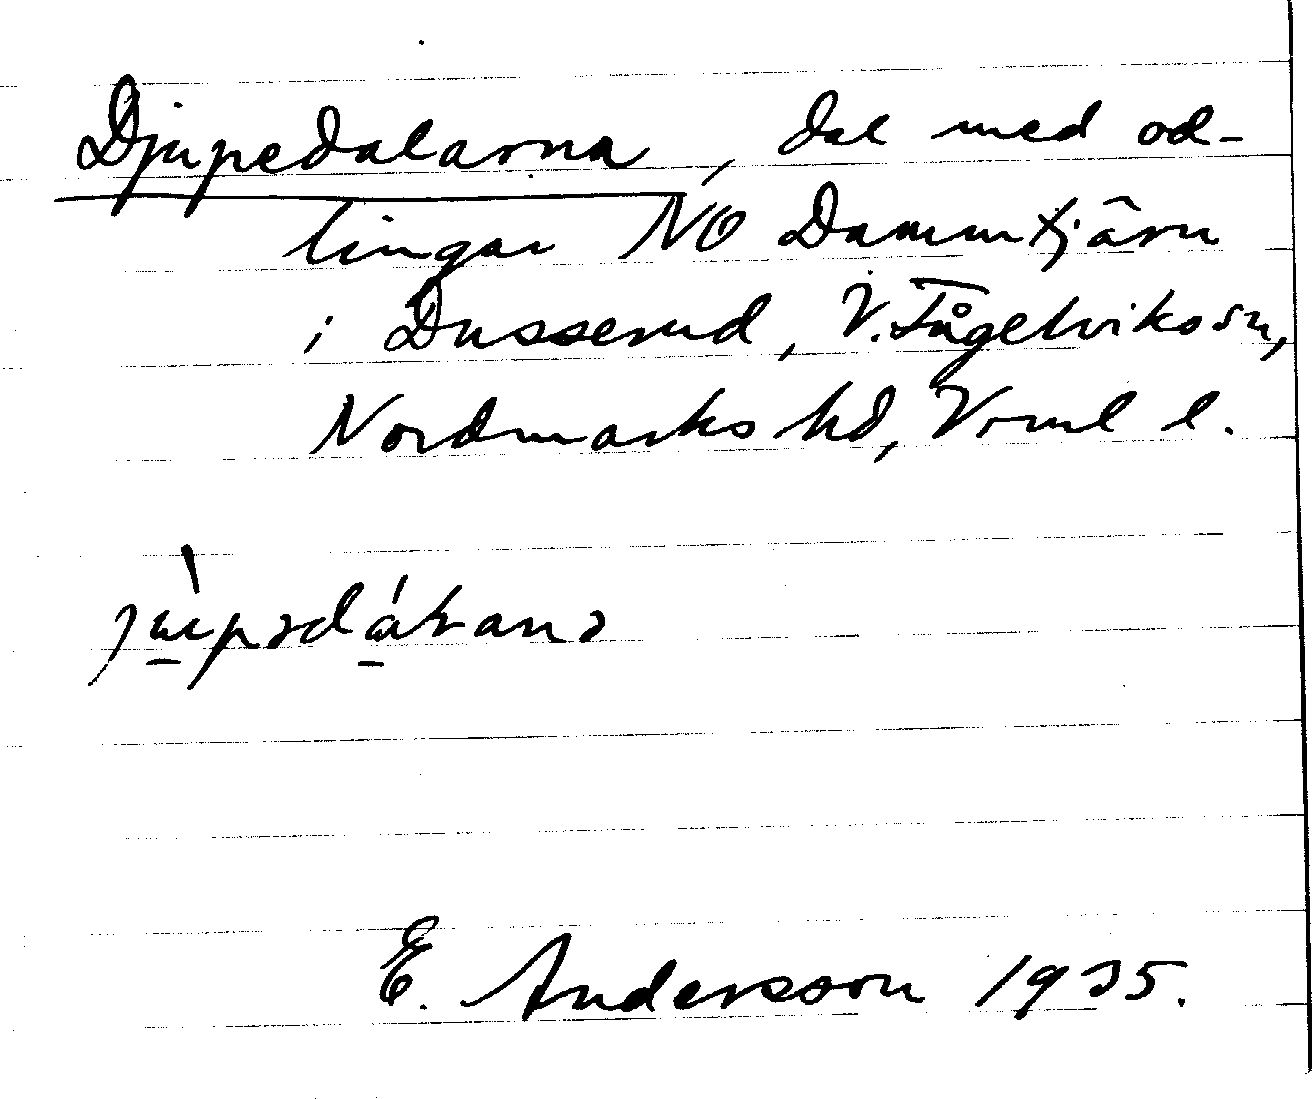 Djupedalarna, dal med od-
lingar NO Dammtjärn
i Dusserud, V. Fågelviks sn,
Nordmarks hd, Vrml l.
E. Andersson 1935.